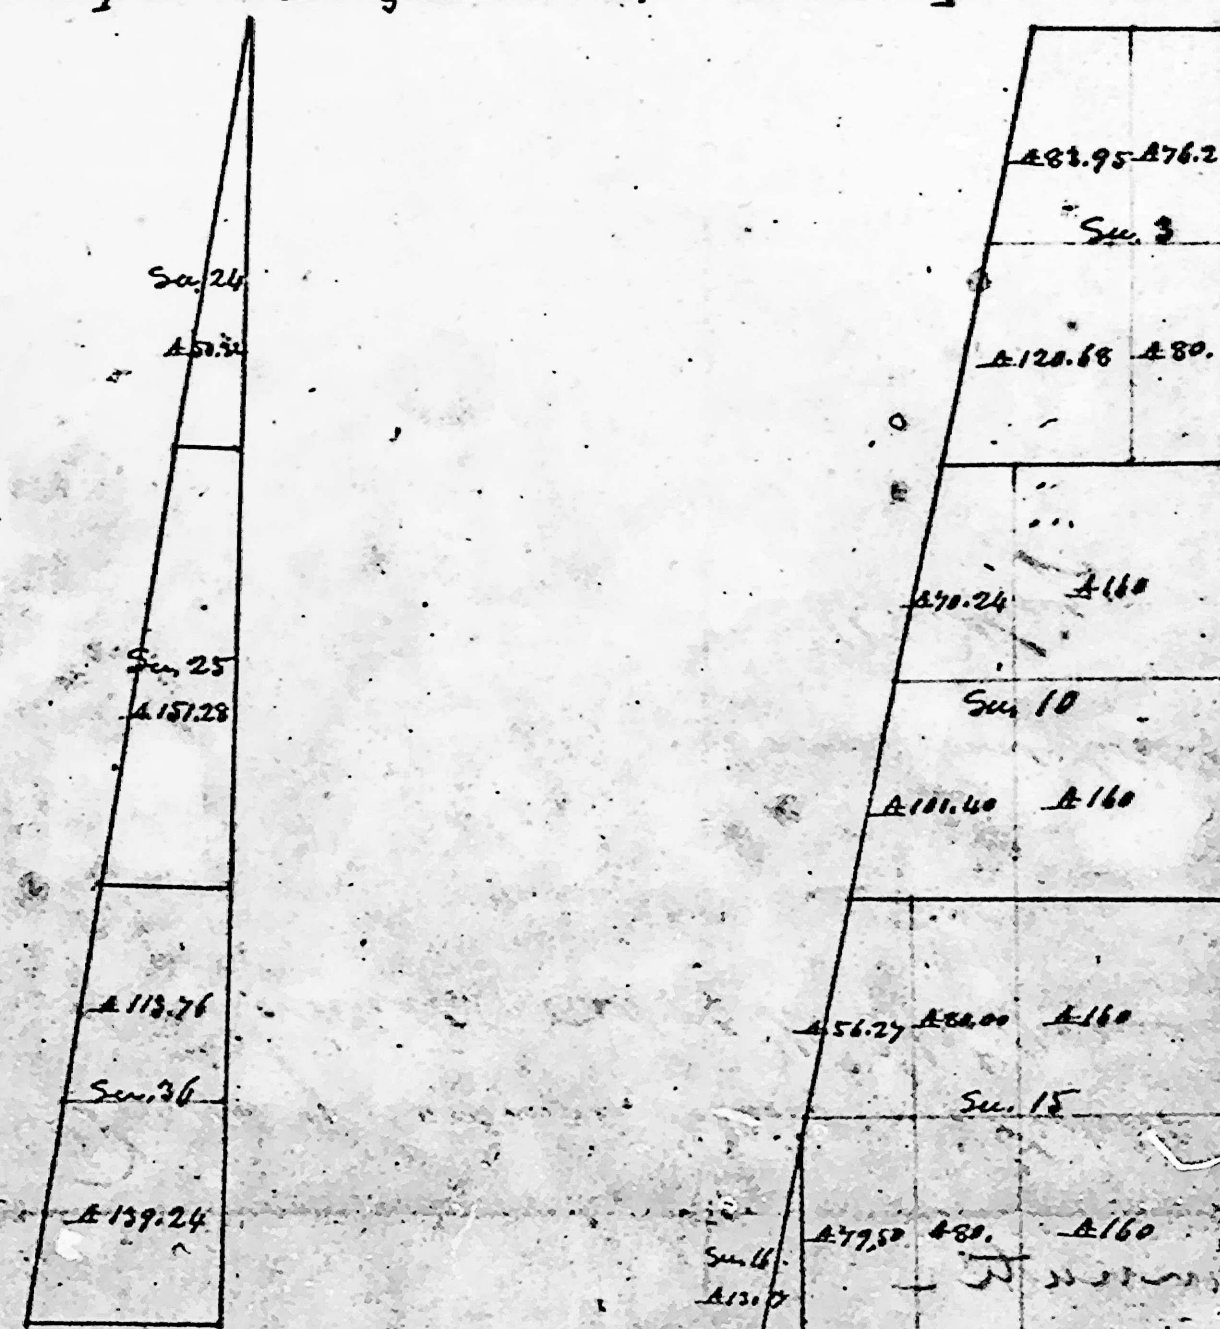 Sec. 24
A 151.28
Sec. 25
A 113.76
Sec. 36
A 139.24
A 83.95 A 76.2
Sec. 3
A 120.68 A 80.
A 70.24 A 160
Sec. 10
A 101.40 A 160
A 56.27 A 80.00 A 160
Sec. 15
A 79,50 A 80. A 160
Sec. 16